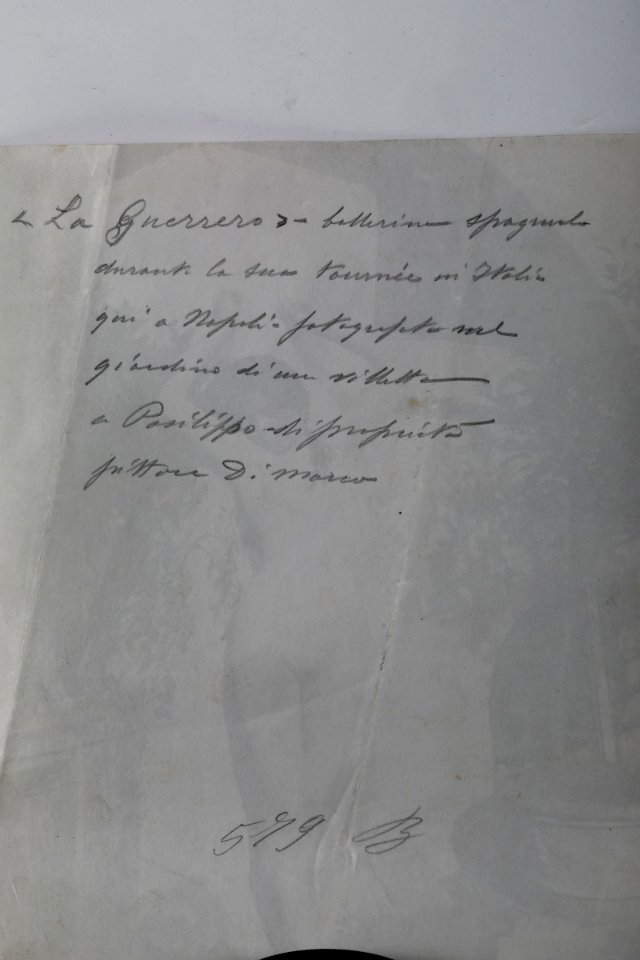 « La Guerrero » - ballerina spagnuola
durante la sua tournée in Italia
qui a Napoli fotografata nel
giardino di una villetta
a Posilippo - di proprietà
pittore Di Marco
579 B